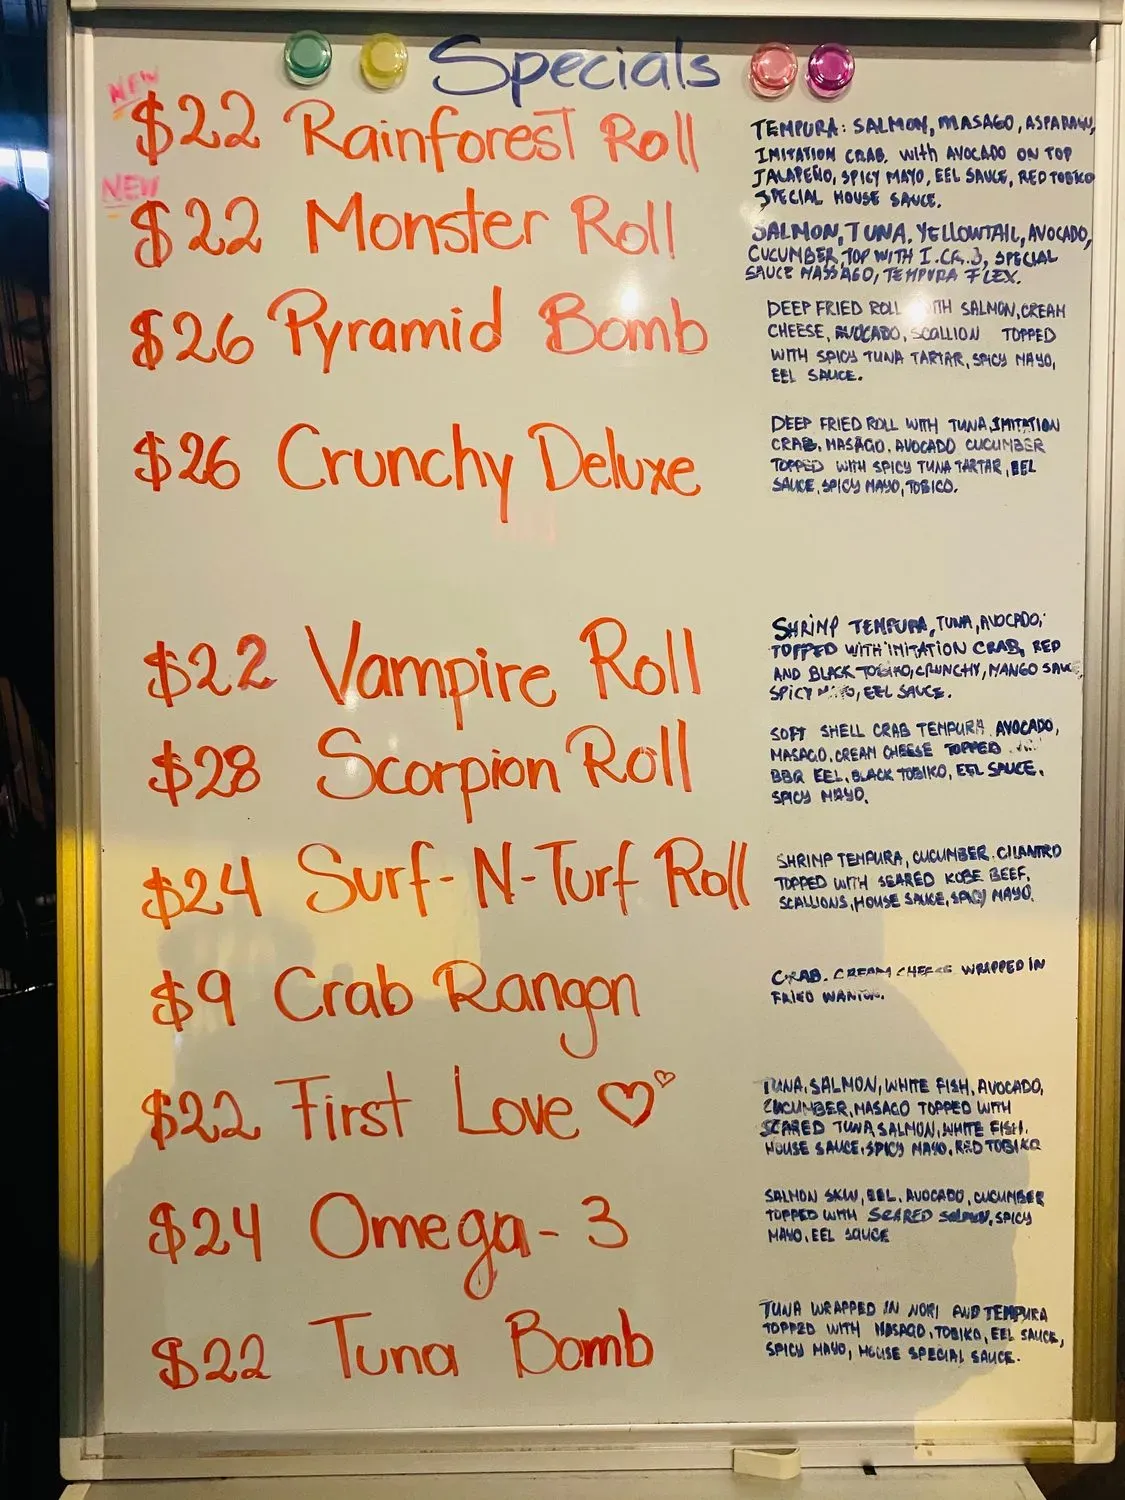 Specials
NEW
$22 Rainforest Roll
TEMPURA: SALMON, MASAGO, ASPARAGU,
IMITATION CRAB. with AVOCADO ON TOP
JALAPEÑO, SPICY MAYO, EEL SAUCE, RED TOBIKO
SPECIAL HOUSE SAUCE.
NEW
$22 Monster Roll
SALMON, TUNA, YELLOWTAIL, AVOCADO,
CUCUMBER, TOP WITH SPECIAL
SAUCE MASSAGO, TEMPURA FLEX.
$26 Pyramid Bomb
DEEP FRIED ROLL WITH SALMON, CREAM
CHEESE, AVOCADO, SCALLION TOPPED
WITH SPICY TUNA TARTAR, SPICY MAYO,
EEL SAUCE.
$26 Crunchy Deluxe
DEEP FRIED ROLL WITH TUNA, IMITATION
CRAB, MASAGO, AVOCADO CUCUMBER
TOPPED WITH SPICY TUNA TARTAR, EEL
SAUCE, SPICY MAYO, TOBICO.
$22 Vampire Roll
SHRIMP TEMPURA, TUNA, AVOCADO,
TOPPED WITH IMITATION CRAB, RED
AND BLACK TOBIKO, CRUNCHY, MANGO SAUC
SPICY MAYO, EEL SAUCE.
$28 Scorpion Roll
SOFT SHELL CRAB TEMPURA AVOCADO,
MASAGO, CREAM CHEESE TOPPED
BBQ EEL, BLACK TOBIKO, EEL SAUCE,
SPICY MAYO.
$24 Surf-N-Turf Roll
SHRIMP TEMPURA, CUCUMBER, CILANTRO
TOPPED WITH SEARED KOBE BEEF,
SCALLIONS, HOUSE SAUCE, SPICY MAYO.
$9 Crab Rangon
CRAB, CREAM CHEESE WRAPPED IN
FRIED WANTON.
$22 First Love ♡♡
TUNA, SALMON, WHITE FISH, AVOCADO,
CUCUMBER, MASAGO TOPPED WITH
SEARED TUNA, SALMON, WHITE FISH,
HOUSE SAUCE, SPICY MAYO, RED TOBIKO
$24 Omega-3
SALMON SKIN, EEL, AVOCADO, CUCUMBER
TOPPED WITH SEARED SALMON, SPICY
MAYO, EEL SAUCE
$22 Tuna Bomb
TUNA WRAPPED IN NORI AND TEMPURA
TOPPED WITH MASAGO, TOBIKO, EEL SAUCE,
SPICY MAYO, HOUSE SPECIAL SAUCE.